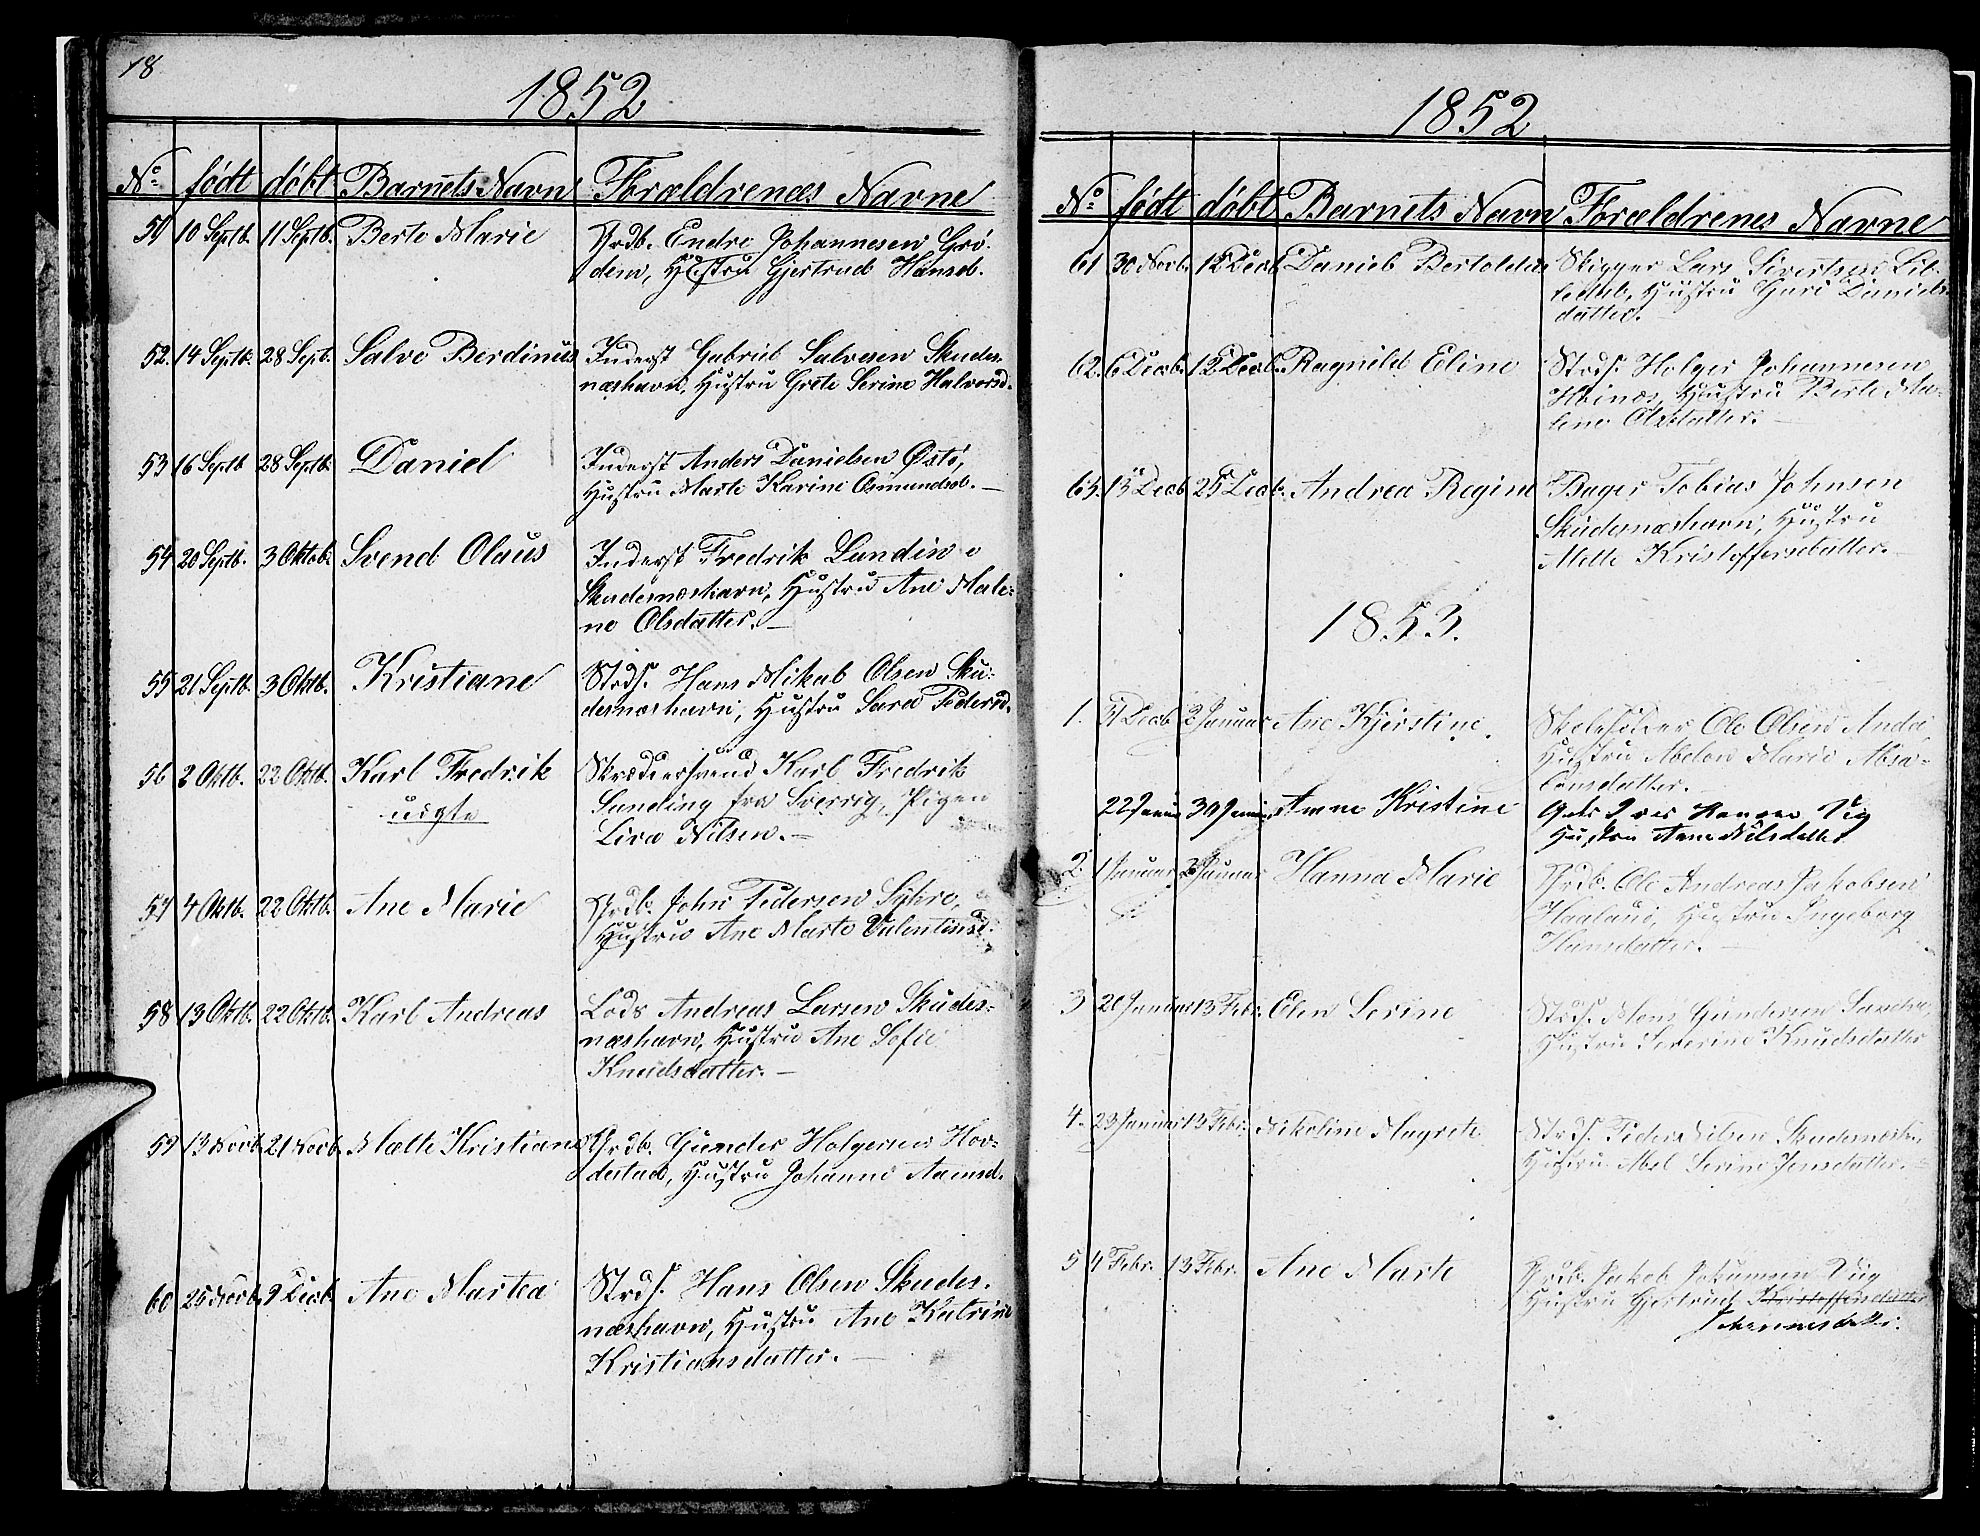 18
1852
No født døbt Barnets Navn Forældrenes Navne
51 10 Septb. 11 Septb. Berte Marie Grdb. Endre Johannesen Grø-
dem, Hustru Gjertrud Hansd.
52. 14 Septb. 28 Sept. Salve Berdinus Inderst Gabriel Salvesen Skudes-
næshavn, Hustru Grete Serine Halvorsd.
53 16 Septb 28 Septb. Daniel Inderst Anders Danielsen Østø,
Hustru Marte Karine Osmundsd. —
54 20 Septb. 3 Oktob. Svend Olaus Inderst Fredrik Lundin
Skudesnæshavn, Hustru Ane Male-
ne Olsdatter. —
55 21 Septb. 3 Oktb. Kristiane Strds. Hans Mikal Olsen Sku-
desnæshavn, Hustru Sara Pedersd.
56 2 Oktb. 22 Oktb. Karl Fredrik Skrædersvend Karl Fredrik
uegte Sunding fra Sverrig, Pigen
Liva Nilsen. —
57 4 Oktb. 22 Oktb. Ane Marie Grdb. John Pedersen Syhre,
Hustru Ane Marte Valentinsd.
58 13 Oktb. 22 Oktb. Karl Andreas Lods Andreas Larsen Skudes-
næshavn, Hustru Ane Sofie
Knudsdatter. —
59 13 Novb. 21 Novb. Mælte Kristiane Grdb. Gunder Holgersen Hov-
destad, Hustru Johanne Aamsd.
60 25 Novb. 9 Decb. Ane Martea Strds. Hans Olsen Skudes-
næshavn, Hustru Ane Katrine
Kristiansdatter. —
1852
No født døbt Barnets Navn Forældrenes Navne
61 30 Novb. 12 Decb. Daniel Bertoldus Skipper Lars Sivertsen Lil-
ledal, Hustru Guri Daniels-
datter.
62. 6 Decb. 12 Decb. Ragnild Eline Strds. Holger Johannesen
Høinæs, Hustru Berte Ma-
lene Olsdatter. —
63. 13 Decb 25 Decb. Andrea Regine Bager Tobias Johnsen
Skudesnæshavn, Hustru
Mette Kristoffersdatter. —
1853.
1. 31 Decb 2 Januar Ane Kjerstine. Ole Olsen
Hustru Abelon Marie Absa-
lonsdatter. —
22 Januar 30 Januar Anne Kristine Hansen Vig
Hustru Anne Nilsdatter
2. 1 Januar 2 Januar Hanna Marie Grdb. Ole Andreas Jakobsen
Haaland, Hustru Ingeborg
Hansdatter. —
3 20 Januar 13 Febr. Elen Serine Strds. Mons Gundersen Sandve,
Hustru Severine Knudsdatter
4. 23 Januar 13 Febr. Nikoline Magrete Strds. Peder Nilsen Skudesnæsh.
Hustru Abel Serine Jensdatter. —
5 4 Febr. 13 Febr. Ane Marte Grdb. Jakob Johansen Viig
Hustru Gjertrud Kristoffersdatter
Johannesdatter.